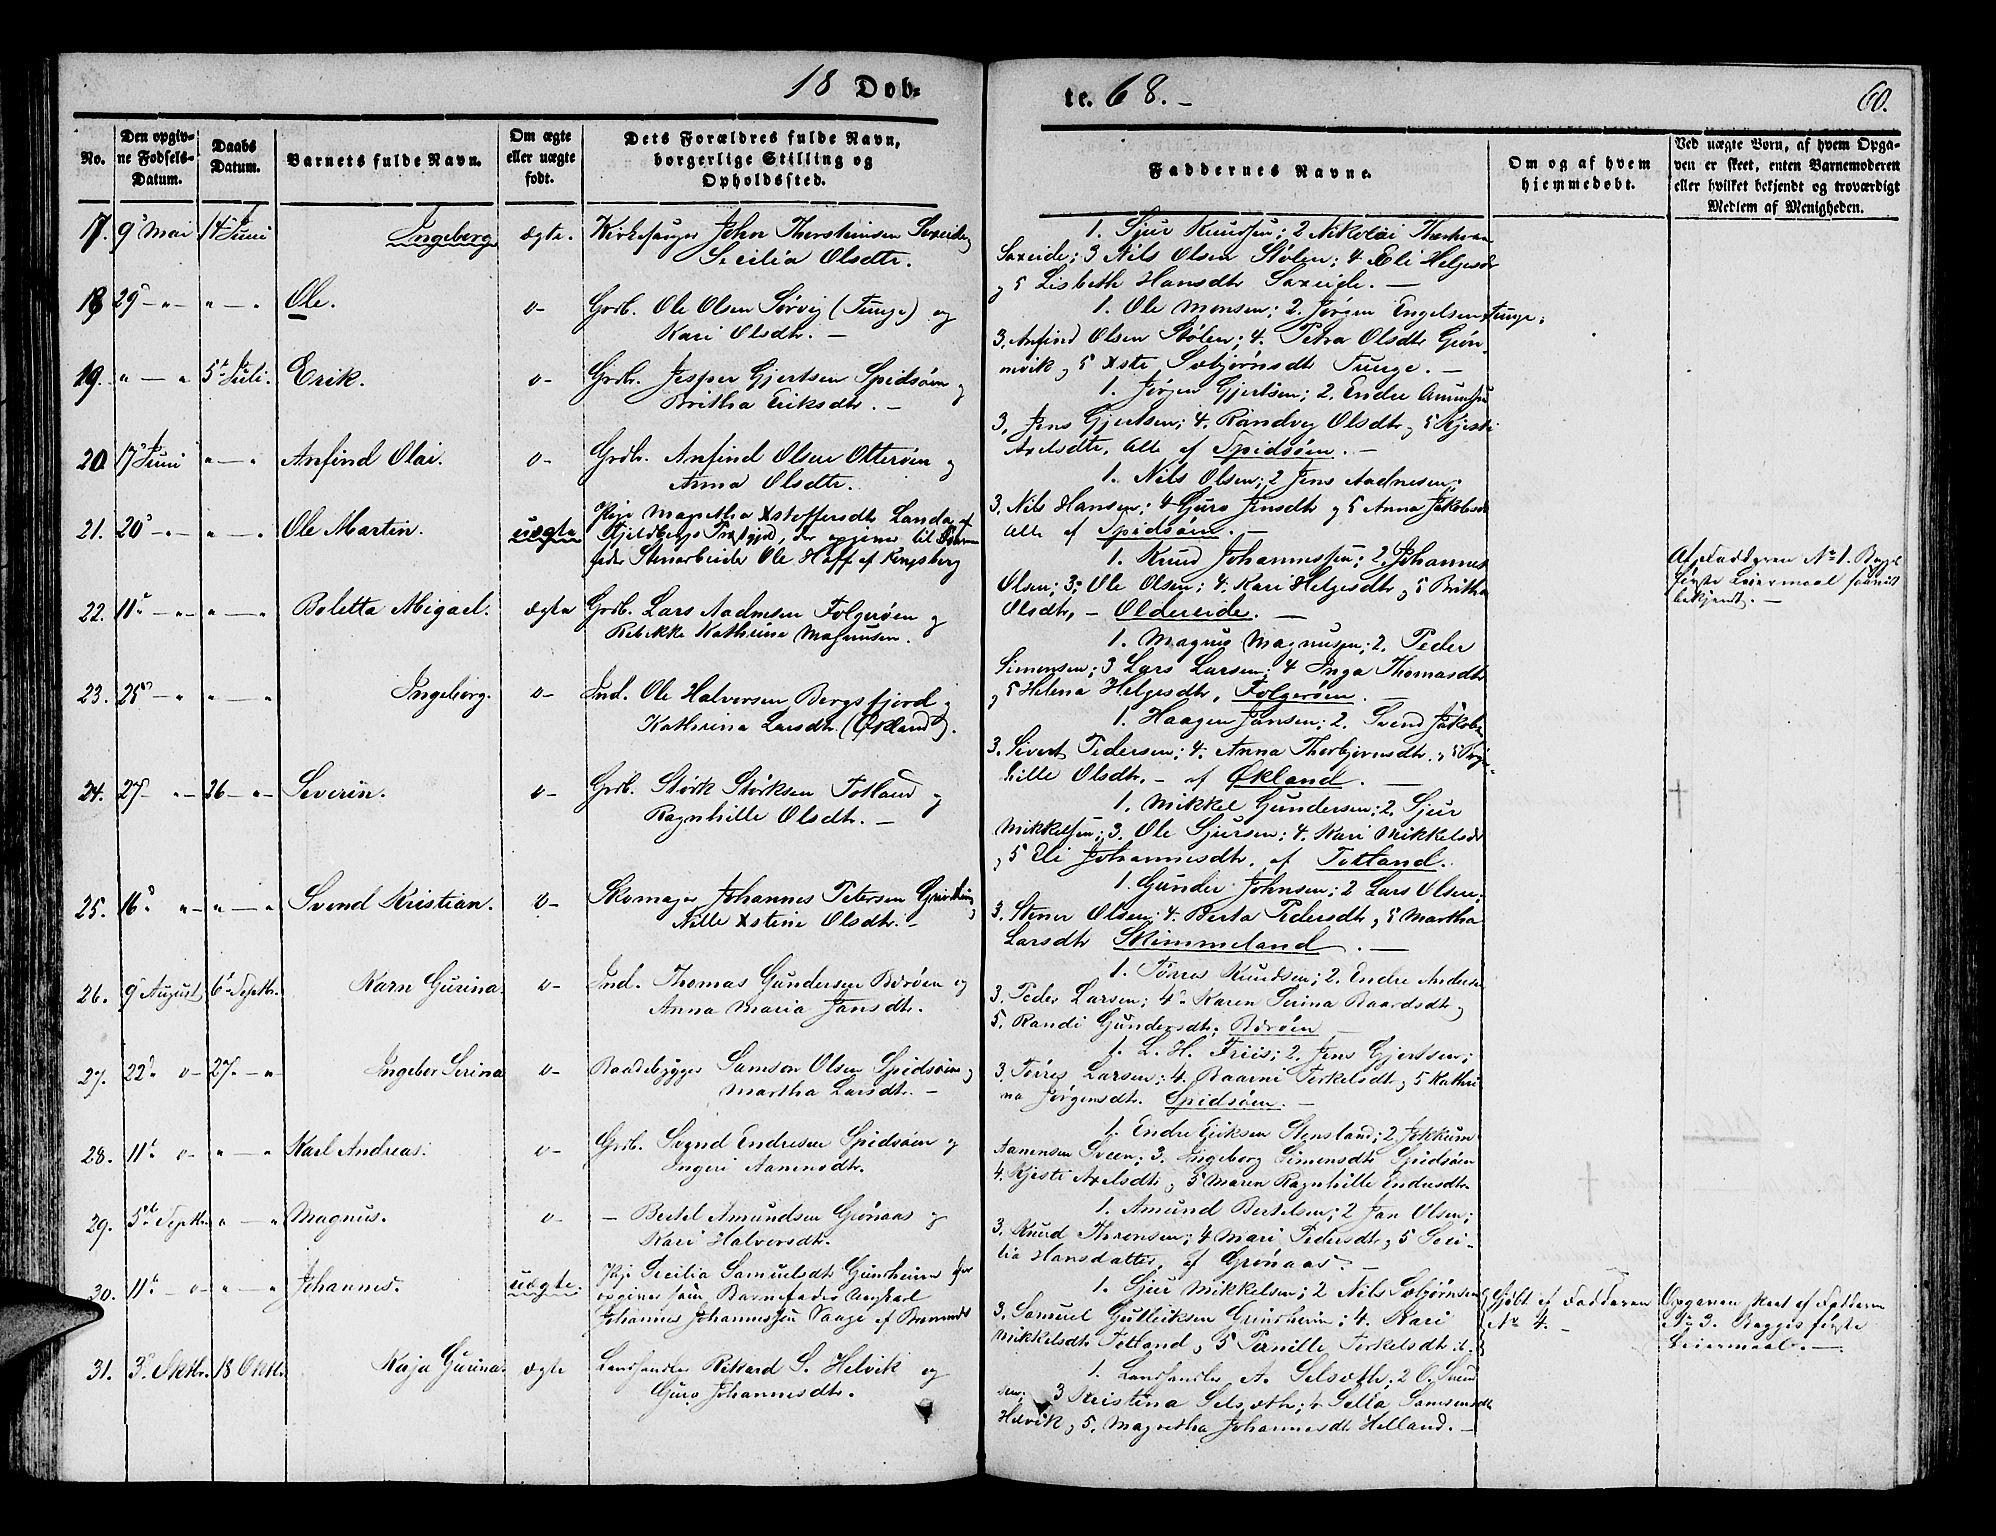 18 Døb-
te. 68. -
60.
No.
Den opgiv-
ne Fødsels-
Datum.
Daabs
Datum.
Barnets fulde Navn.
Om ægte
eller uægte
født.
Dets Forældres fulde Navn,
borgerlige Stilling og
Opholdssted.
Faddernes Navne.
Om og af hvem
hjemmedøbt.
Ved uægte Børn, af hvem Opga-
ven er skeet, enten Barnemoderen
eller hvilket bekjendt og troværdigt
Medlem af Menigheden.
17. 9 Mai 14 Juni Ingeborg ægte. Kirkesanger John Thorsteinsen Sexeide
Secilia Olsdtr.
1. Sjur Knudsen; 2 Nikolai
Sexeide; 3 Nils Olsen Stølen; 4 Eli Helgesdr
og 5 Lisbeth Hansdtr Sexeide. -
18 29 - " " - " Ole. o- Grdb. Ole Olsen Sørvig (Tunge) og
Kari Olsdtr. -
1. Ole Monsen; 2. Jørgen Engelsen Tunge;
3. Anfind Olsen Stølen; 4. Petra Olsdtr Grøn-
nevik og 5 Xste Sæbjørnsdtr Tunge. -
19. " - " 5 Juli. Erik. o- Grdb. Jesper Gjertsen Spidsøen og
Britha Eriksdtr. -
1. Jørgen Gjertsen; 2. Endre Amundsen
3. Jens Gjertsen; 4. Randvei Olsdtr og 5 Kjersti
Axelsdtr, alle af Spidsøen. -
20. 17 Juni " - " Anfind Olai. o- Grdb. Anfind Olsen Otterøen og
Anna Olsdtr.
1. Nils Olsen; 2 Jens Aadnesen;
3. Nils Hansen; 4 Guro Jensdtr og 5 Anna Jakobsdr
alle af Spidsøen. -
21. 20 - " - " - " Ole Martin. uægte Pige Magretha Xstoffersdtr Landa af
Fjeldbergs Præstgjeld, der opgiver til Barne-
fader Stenarbeider Ole Hoff af Kongsberg
1. Knud Johannessen; 2. Johannes
Olsen; 3; Ole Olsen; 4. Kari Helgesdtr og 5 Britha
Olsdtr, - Oldereide. -
Af Fadderen No 1. Begges
første Leiermaal saavidt
bekjendt. -
22. 11 - " " - " Boletta Migael. ægte Grdb. Lars Aadnesen Folgerøen og
Rebekke Kathrine Magnusen.
1. Magnus Magnussen; 2. Peder
Simonsen; 3 Lars Larsen; 4 Inga Thomasdtr
og 5 Helena Helgesdtr, Folgerøen. -
23. 25 - " " - " Ingeborg. o- Ind. Ole Halversen Bergsfjord og
Kathrina Larsdtr. (Økland).
1. Haagen Jansen; 2. Svend Jakobs
3. Sivert Pedersen; 4. Anna Thorbjørnsdtr. og 5
hille Olsdtr. - af Økland. -
24. 27 - " - 26 - " - Severin. o- Grdb. Størk Størksen Totland og
Ragnhille Olsdtr. -
1. Mikkel Gundersen; 2. Sjur
Mikkelsen; 3. Ole Sjursen; 4. Kari Mikkelsdr
og 5 Eli Johannesdtr, af Totland.
25. 16 " - " - " Svend Kristian. o- Skomager Johannes Petersen
Nille Xstine Olsdtr. -
1. Gunder Johnsen; 2 Lars Olsen;
3. Stener Olsen; 4. Berta Pedersdtr og 5 Martha
Larsdtr Skimmeland. -
26. 9 August 6 Septbr. Karn Gurina. o- Ind. Thomas Gundersen Børøen og
Anna Maria Jansdtr.
1. Tørres Knudsen; 2. Endre Andersen
3. Peder Larsen; 4. Karen Serina Baardsdtr og
5. Randi Gundersdtr, Børøen
27. 22 o- 27. - " Ingebor Serina o- Baadebygger Samson Olsen Spidsøen og
Martha Larsdtr. -
1. L. H. Friis; 2. Jens Gjertsen;
3. Tørres Larsen; 4. Baarni Terkelsdtr og 5 Kathri
na Jørgensdtr. Spidsøen. -
28. 11 o- " - " Karl Andreas. o- Grdb. Svend Endresen Spidsøen og
Ingeri Aamundtr.
1. Endre Eriksen Stensland; 2 Jokkum
Aamnsen Sveen; 3. Ingeborg Simensdtr Spidsøen
4. Kjersti Axelsdtr og 5 Maren Ragnhille Endresdtr.
29. 5 Septbr. " - " Magnus. o- - Bertel Amundsen Grønaas og
Kari Halversdtr.
1. Amund Bertelsen; 2 Jan Olsen;
3. Knud Thronsen; 4 Mari Pedersdtr og 5 Seci-
lia Hansdatter, af Grønaas. -
30. 11 - o- " - " Johannes. uægte. Pige Secilia Samuelsdtr Grindheim der
opgiver som Barnefader Ungkarl
Johannes Johannessen Vaage af Bremnæs
1. Sjur Mikkelsen; 2 Nils Sæbjørnsen
3. Samuel Gulleiksen Grindheim; 4. Kari
Mikkelsdtr Totland og 5 Pernille Terkelsdtr
Hjdbt af Fadderen
No 4. -
Opgaven skeet af Fadderen
No 3. Begges første
Leiermaal. -
31. 3 Oktbr. 18 Oktbr. Kaja Gurina. ægte Landhandler Rikard S. Helvik og
Guro Johannesdtr.
1. Landhandler A. Selsæth; 2 O. Svend
sen; 3 Kristina Selsæth; 4 Sella Samsensdtr
Helvik og 5. Magretha Johannesdtr Helland. -